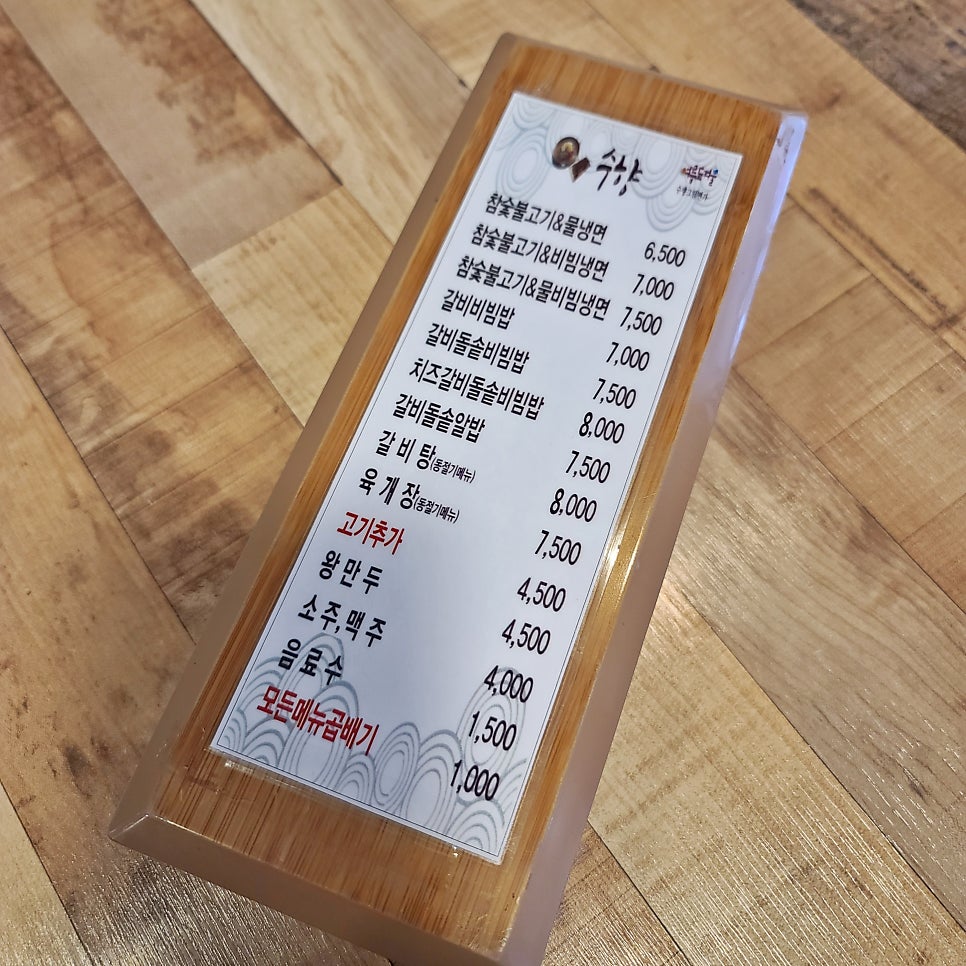 수향
참숯불고기&물냉면 6,500
참숯불고기&비빔냉면 7,000
참숯불고기&물비빔냉면 7,500
갈비비빔밥 7,000
갈비돌솥비빔밥 7,500
치즈갈비돌솥비빔밥 8,000
갈비돌솥알밥 7,500
갈비탕(동절기메뉴) 8,000
육개장(동절기메뉴) 7,500
고기추가 4,500
왕만두 4,500
소주,맥주 4,000
음료수 1,500
모든메뉴곱배기 1,000